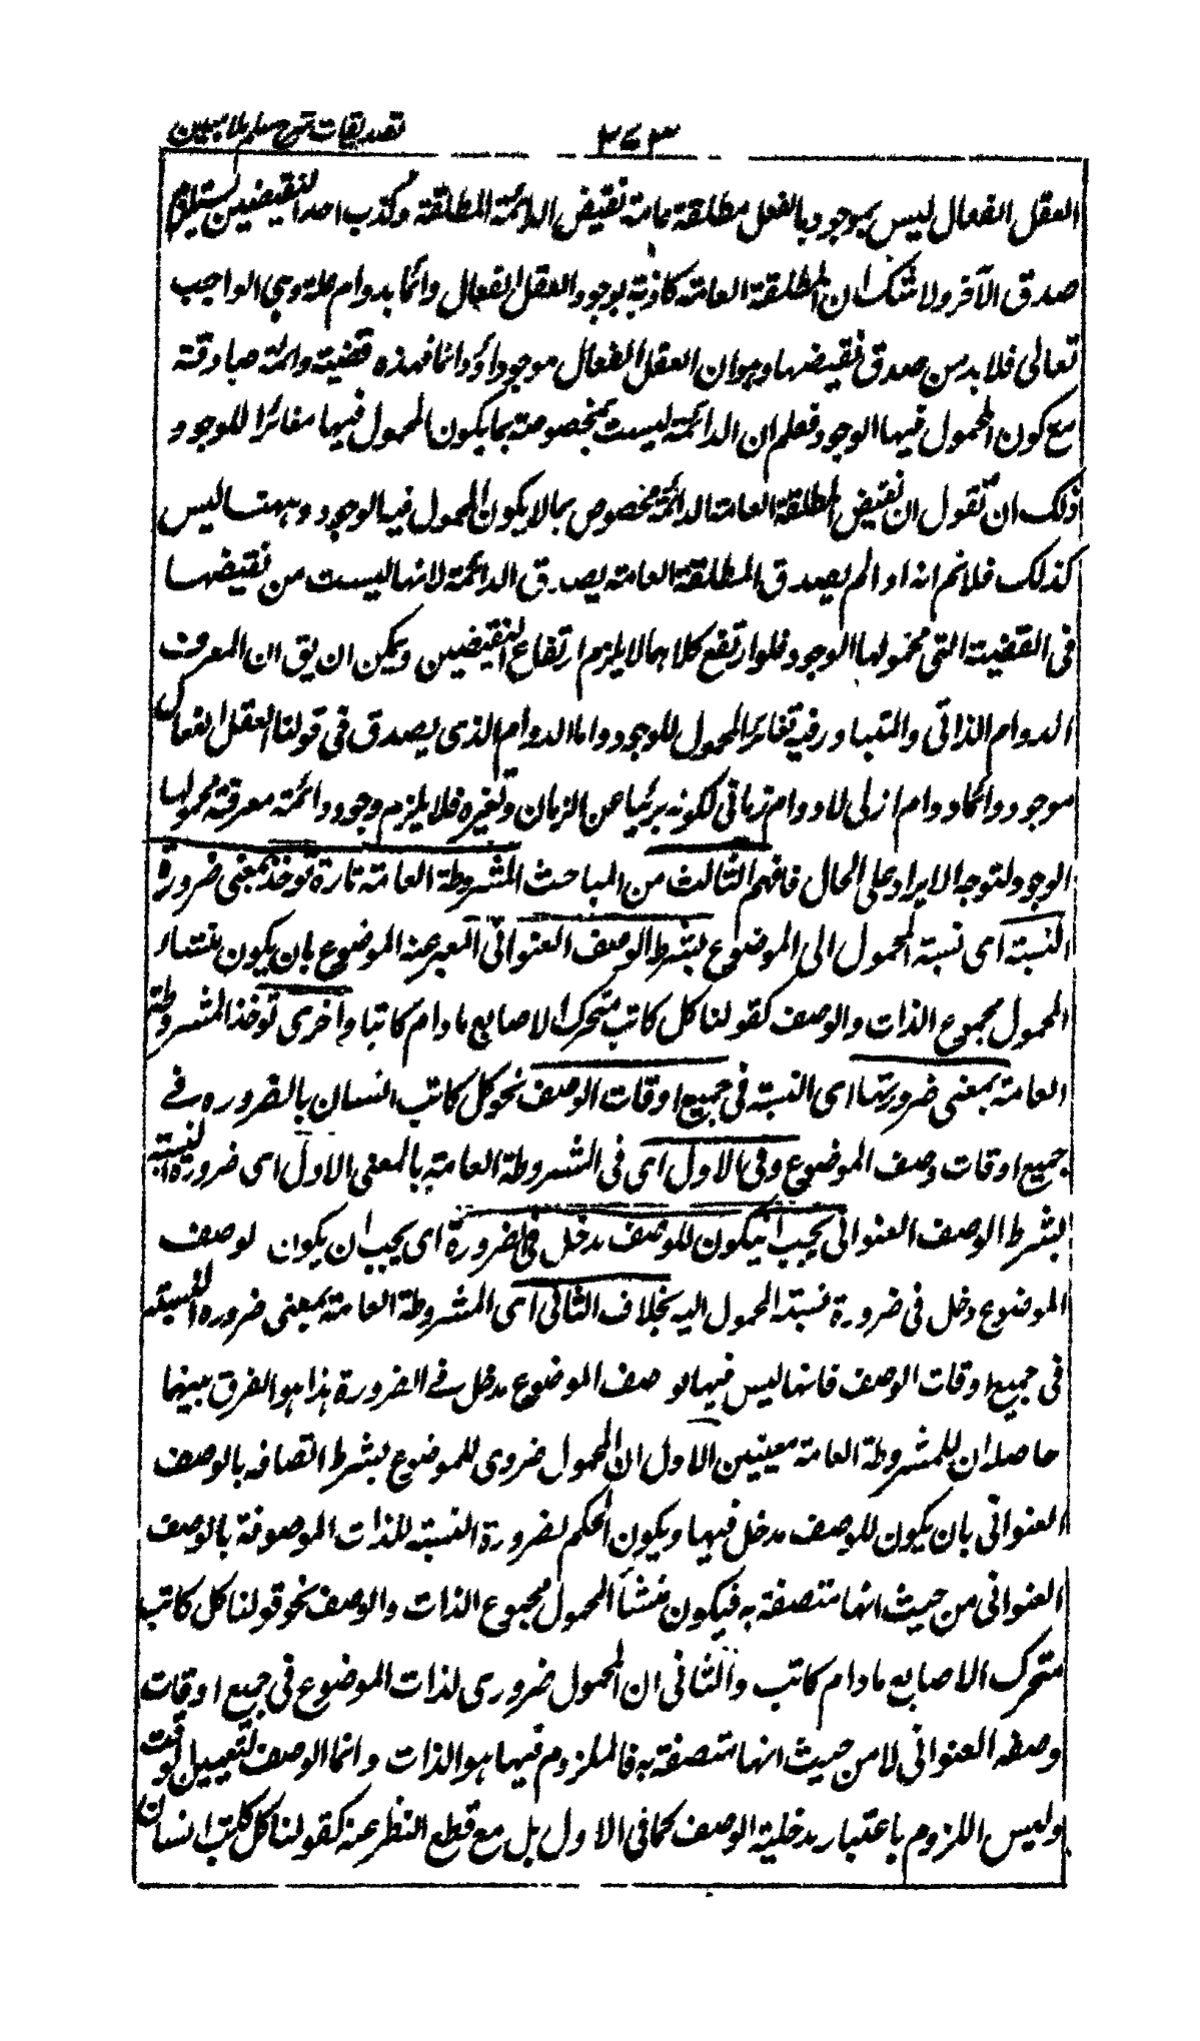 تصدیقات شرح سلم ملا مبین
٣٧٣
العقل الفعال لیس بموجود بالفعل مطلقة عامة نقیض الدائمة المطلقة وکذب احد النقیضین یستلزم
صدق الآخر ولا شک ان المطلقة العامة کاذبة لوجود العقل الفعال دائما بدوام علة وہی الواجب
تعالی فلا بد من صدق نقیضہا وہو ان العقل الفعال موجود دائما فہذہ قضیة دائمة صادقة
مع کون المحمول فیہا الوجود فعلم ان الدائمة لیست مخصوصة بما یکون المحمول فیہا مغائرا للوجود و
لک ان تقول ان نقیض المطلقة العامة الدائمة مخصوص بما لا یکون المحمول فیہ الوجود وہہنا لیس
کذلک فلانم انہ اذا لم یصدق المطلقة العامة یصدق الدائمة لانہا لیست من نقیضہا
فی القضیة التی محمولہا الوجود فلو ارتفع کلاہما لا یلزم ارتفاع النقیضین ویمکن ان یق ان المعرف
الدوام الذاتی والمتبادر فیہ تغائر المحمول للوجود واما الدوام الذی یصدق فی قولنا العقل الفعال
موجود دائما دوام ازلی لا دوام زمانی لکونہ بریئا من الزمان وتغیرہ فلا یلزم وجود دائمة معرفة محمولہا
الوجود لتوجہ الایراد علی الحال فافہم الثالث من المباحث المشروطة العامة تارة توخذ بمعنی ضرورة
النسبة ای نسبة المحمول الی الموضوع بشرط الوصف العنوانی المعبر عنہ الموضوع بان یکون منشاء
المحمول مجموع الذات والوصف کقولنا کل کاتب متحرک الاصابع مادام کاتبا واخری توخذ المشروطة
العامة بمعنی ضرورتہا ای النسبة فی جمیع اوقات الوصف نحو کل کاتب انسان بالضرورہ فے
جمیع اوقات وصف الموضوع وفی الاول ای فی المشروطة العامة بالمعنی الاول ای ضرورة النسبة
بشرط الوصف العنوانی یجب ان یکون للوصف مدخل فی الضرورة ای یجب ان یکون لوصف
الموضوع دخل فی ضرورة نسبتہ المحمول الیہ بخلاف الثانی ای المشروطة العامة بمعنی ضرورہ النسبتہ
فی جمیع اوقات الوصف فانہا لیس فیہا لو صف الموضوع مدخل فے الضرورة ہذا ہو الفرق بینہما
حاصلہ ان للمشروطة العامة معنیین الاول ان المحمول ضروی للموضوع بشرط اتصافہ بالوصف
العنوانی بان یکون للوصف مدخل فیہا ویکون الحکم لضرورة النسبة للذات الموصوفة بالوصف
العنوانی من حیث انہا متصفة بہ فیکون منشأ المحمول مجموع الذات والوصف نحو قولنا کل کاتب
متحرک الاصابع مادام کاتب والثانی ان المحمول ضروری لذات الموضوع فی جمیع اوقات
وصفہ العنوانی لا من حیث انہا متصفة بہ فالملزوم فیہا ہو الذات وانما الوصف لتعیین الوقت
ولیس اللزوم باعتبار مدخلیة الوصف کما فی الاول بل مع قطع النظر عنہ کقولنا کل کاتب انسان